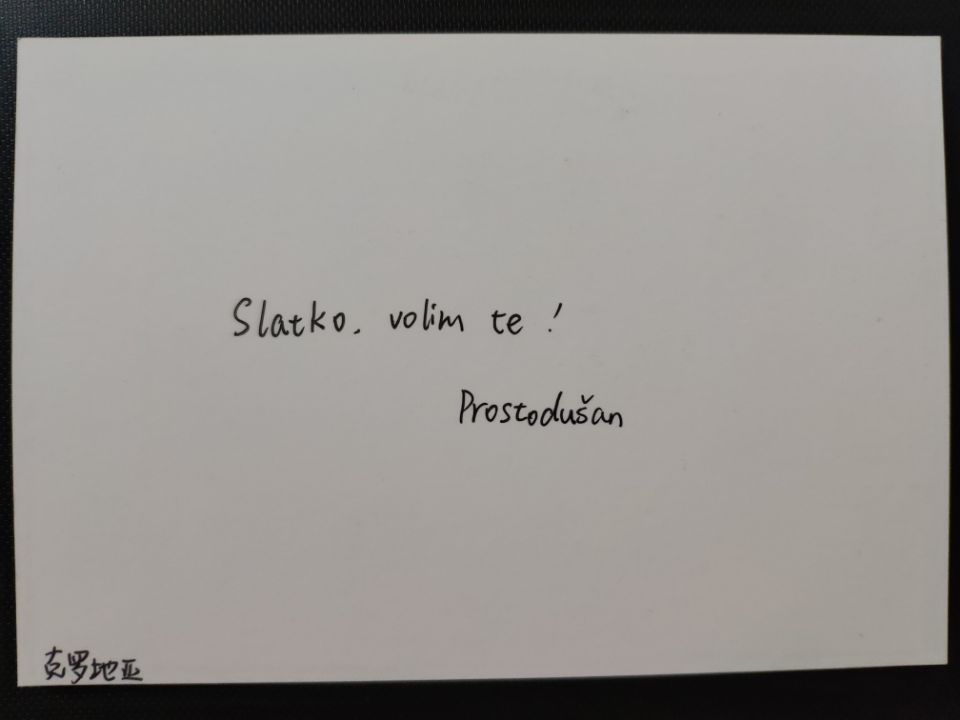 Slatko, volim te!
Prostodušan
克罗地亚